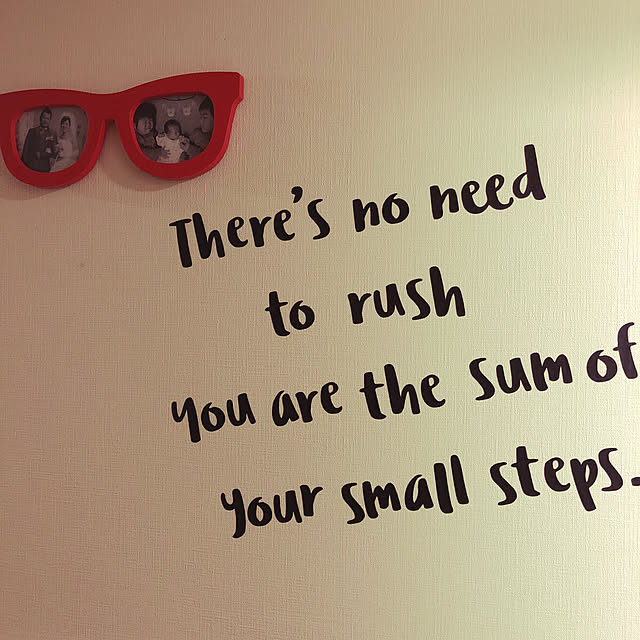 There's no need
to rush
you are the sum of
your small steps.